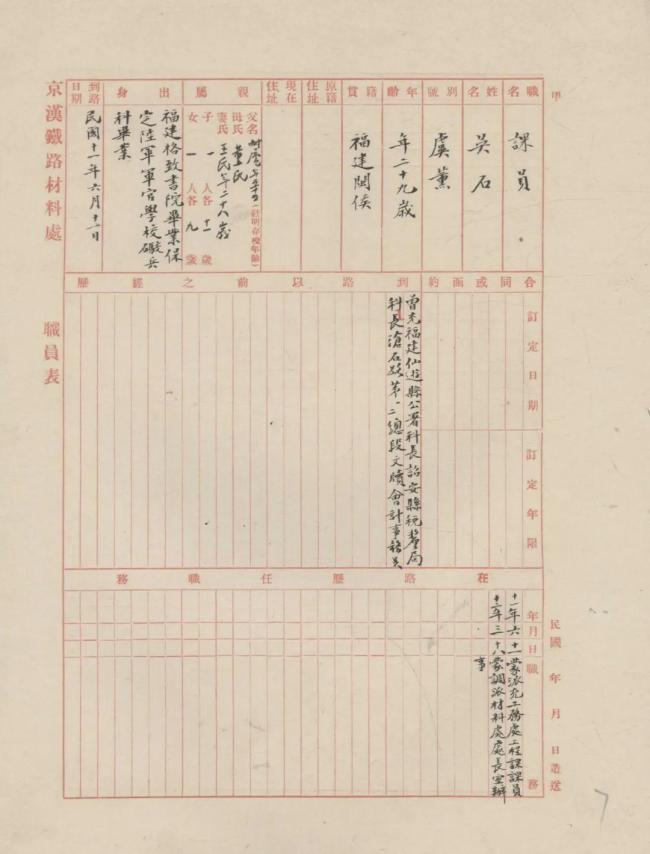 甲
職名 課員
姓名 吳石
別號 虞薰
年齡 年二十九歲
籍貫 福建閩侯
原籍住址
現在住址
親屬
父名(註明存歿年齡)
母氏 董氏
妻氏 王氏年二十八歲
子 一人各 十一 歲
女 一人各 九 歲
出身
福建格致書院畢業保
定陸軍軍官學校礮兵
科畢業
到路日期 民國十一年六月十一日
京漢鐵路材料處 職員表
合同或函約
訂定日期
訂定年限
到路以前之經歷
曾充福建仙遊縣公署科長詔安縣稅釐局
科長滄石路第一二總段文牘會計事務員
在路歷任職務
年月日 職務
十一年六 十一 蒙派充工務處工程課課員
十三年三 十八 蒙調派材料處處長室辦
事
民國 年 月 日造送
7